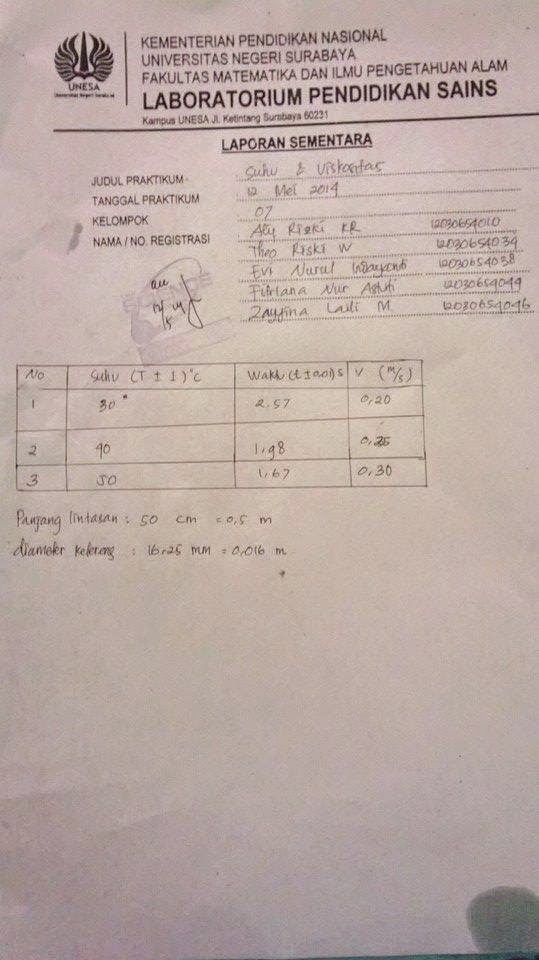 UNESA
Universitas Negeri Surabaya
KEMENTERIAN PENDIDIKAN NASIONAL
UNIVERSITAS NEGERI SURABAYA
FAKULTAS MATEMATIKA DAN ILMU PENGETAHUAN ALAM
LABORATORIUM PENDIDIKAN SAINS
Kampus UNESA Jl. Ketintang Surabaya 60231
LAPORAN SEMENTARA
JUDUL PRAKTIKUM Suhu & Viskositas
TANGGAL PRAKTIKUM 12 Mei 2014
KELOMPOK 07
NAMA / NO. REGISTRASI Aly Rizki KR 12030654010
Theo Riski W 12030654034
Evi Nurul 12030654038
Fitriana Nur Astuti 12030654049
Zayyina Laili M. 12030654046
No Suhu (T ± 1)°c Waktu (t ± 0,01)s v (m/s)
1 30° 2.57 0,20
2 40 1,98 0,25
3 50 1,67 0,30
Panjang lintasan : 50 cm = 0,5 m
diameter kelereng : 16.25 mm = 0,016 m